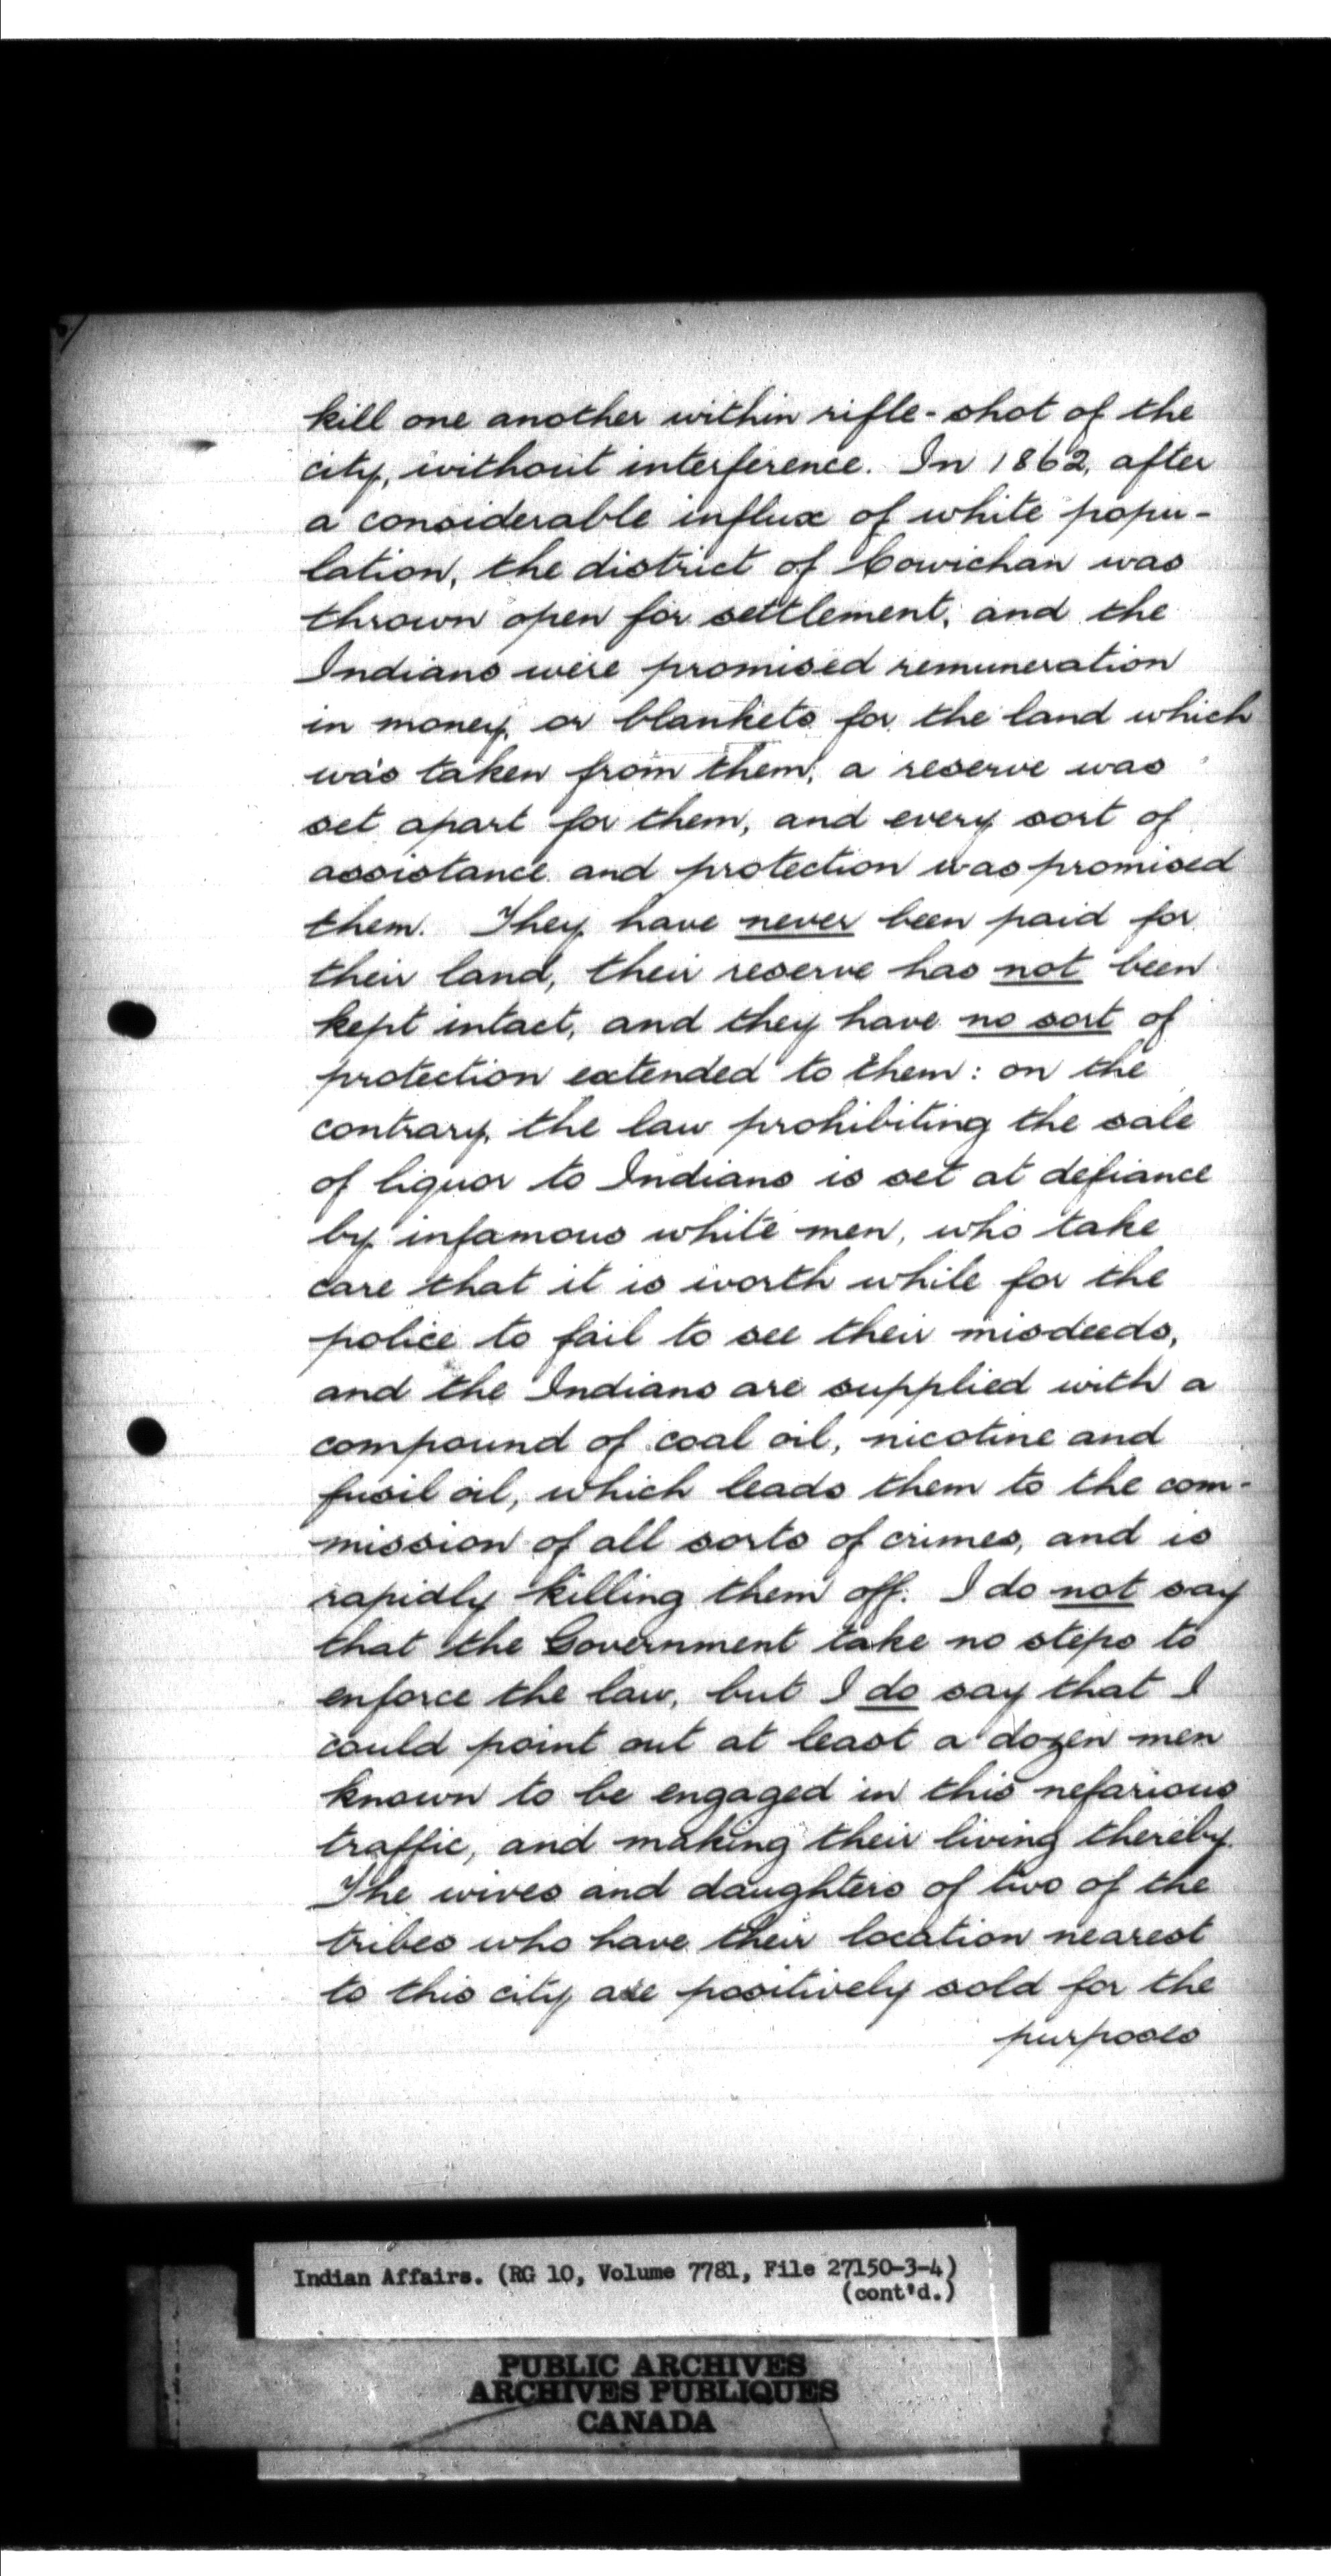 kill one another within rifle-shot of the
city, without interference. In 1862, after
a considerable influx of white popu-
lation, the district of Cowichan was
thrown open for settlement, and the
Indians were promised remuneration
in money or blankets for the land which
was taken from them, a reserve was
set apart for them, and every sort of
assistance and protection was promised
them. They have never been paid for
their land, their reserve has not been
kept intact, and they have no sort of
protection extended to them: on the
contrary, the law prohibiting the sale
of liquor to Indians is set at defiance
by infamous white men, who take
care that it is worth while for the
police to fail to see their misdeeds,
and the Indians are supplied with a
compound of coal oil, nicotine and
fusil oil, which leads them to the com-
mission of all sorts of crimes, and is
rapidly killing them off. I do not say
that the Government take no steps to
enforce the law, but I do say that I
could point out at least a dozen men
known to be engaged in this nefarious
traffic, and making their living thereby.
The wives and daughters of two of the
tribes who have their location nearest
to this city are positively sold for the
purposes
Indian Affairs. (RG 10, Volume 7781, File 27150-3-4)
(cont'd.)
PUBLIC ARCHIVES
ARCHIVES PUBLIQUES
CANADA